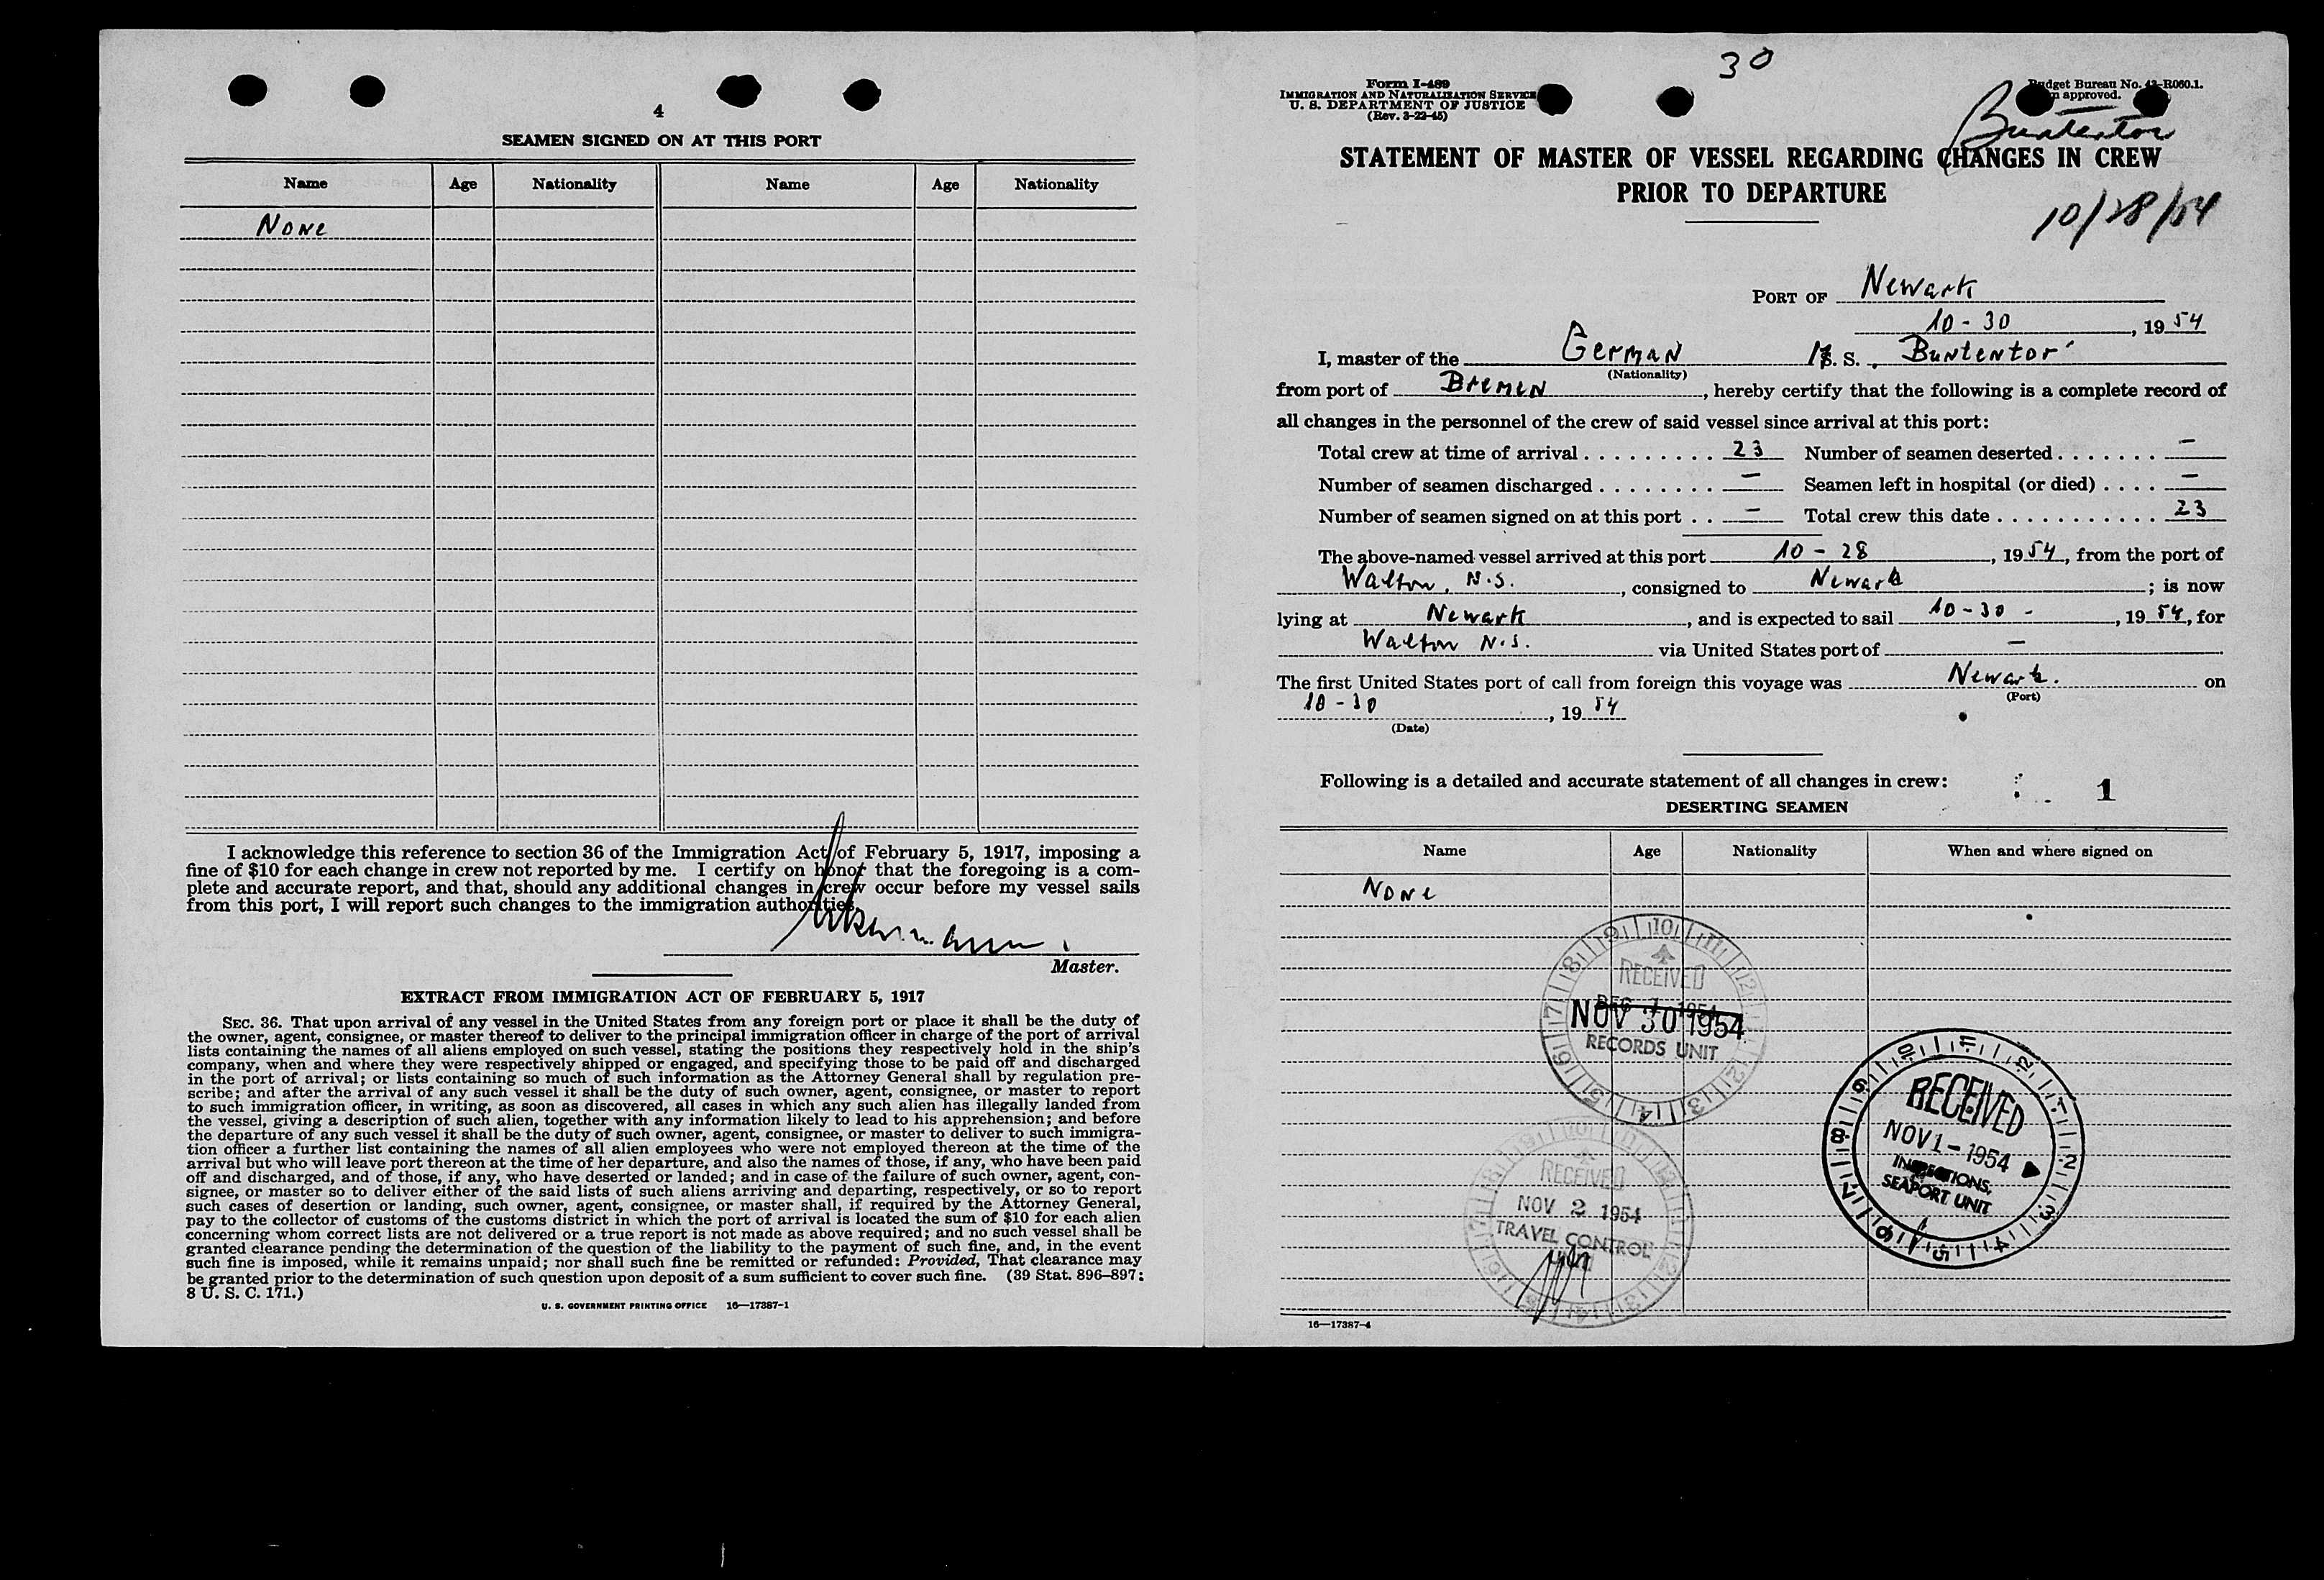 4
SEAMEN SIGNED ON AT THIS PORT
Name Age Nationality Name Age Nationality
None
I acknowledge this reference to section 36 of the Immigration Act of February 5, 1917, imposing a
fine of $10 for each change in crew not reported by me. I certify on honor that the foregoing is a com-
plete and accurate report, and that, should any additional changes in crew occur before my vessel sails
from this port, I will report such changes to the immigration authorities.
Master.
EXTRACT FROM IMMIGRATION ACT OF FEBRUARY 5, 1917
SEC. 36. That upon arrival of any vessel in the United States from any foreign port or place it shall be the duty of
the owner, agent, consignee, or master thereof to deliver to the principal immigration officer in charge of the port of arrival
lists containing the names of all aliens employed on such vessel, stating the positions they respectively hold in the ship's
company, when and where they were respectively shipped or engaged, and specifying those to be paid off and discharged
in the port of arrival; or lists containing so much of such information as the Attorney General shall by regulation pre-
scribe; and after the arrival of any such vessel it shall be the duty of such owner, agent, consignee, or master to report
to such immigration officer, in writing, as soon as discovered, all cases in which any such alien has illegally landed from
the vessel, giving a description of such alien, together with any information likely to lead to his apprehension; and before
the departure of any such vessel it shall be the duty of such owner, agent, consignee, or master to deliver to such immigra-
tion officer a further list containing the names of all alien employees who were not employed thereon at the time of the
arrival but who will leave port thereon at the time of her departure, and also the names of those, if any, who have been paid
off and discharged, and of those, if any, who have deserted or landed; and in case of the failure of such owner, agent, con-
signee, or master so to deliver either of the said lists of such aliens arriving and departing, respectively, or so to report
such cases of desertion or landing, such owner, agent, consignee, or master shall, if required by the Attorney General,
pay to the collector of customs of the customs district in which the port of arrival is located the sum of $10 for each alien
concerning whom correct lists are not delivered or a true report is not made as above required; and no such vessel shall be
granted clearance pending the determination of the question of the liability to the payment of such fine, and, in the event
such fine is imposed, while it remains unpaid; nor shall such fine be remitted or refunded: Provided, That clearance may
be granted prior to the determination of such question upon deposit of a sum sufficient to cover such fine. (39 Stat. 896–897;
8 U. S. C. 171.)
U. S. GOVERNMENT PRINTING OFFICE 16—17387-1
30
Form I-489
IMMIGRATION AND NATURALIZATION SERVICE
U. S. DEPARTMENT OF JUSTICE
(Rev. 3-22-45)
Budget Bureau No. 43-R060.1.
approved.
Buntentor
STATEMENT OF MASTER OF VESSEL REGARDING CHANGES IN CREW
PRIOR TO DEPARTURE
10/28/54
PORT OF Newark
10-30, 1954
I, master of the German M. S. Buntentor
(Nationality)
from port of Bremen, hereby certify that the following is a complete record of
all changes in the personnel of the crew of said vessel since arrival at this port:
Total crew at time of arrival . . . . . . . . . 23 Number of seamen deserted . . . . . . . –
Number of seamen discharged . . . . . . . . – Seamen left in hospital (or died) . . . . –
Number of seamen signed on at this port . . – Total crew this date . . . . . . . . . . . . 23
The above-named vessel arrived at this port 10-28, 1954, from the port of
Walton, N.S., consigned to Newark; is now
lying at Newark, and is expected to sail 10-30-, 1954, for
Walton N.S. via United States port of –
The first United States port of call from foreign this voyage was Newark. on
(Port)
10-30, 1954
(Date)
Following is a detailed and accurate statement of all changes in crew: 1
DESERTING SEAMEN
Name Age Nationality When and where signed on
None
RECEIVED
NOV 30 1954
RECORDS UNIT
RECEIVED
NOV 1-1954
INSPECTIONS,
SEAPORT UNIT
RECEIVED
NOV 2 1954
TRAVEL CONTROL
16—17387-4